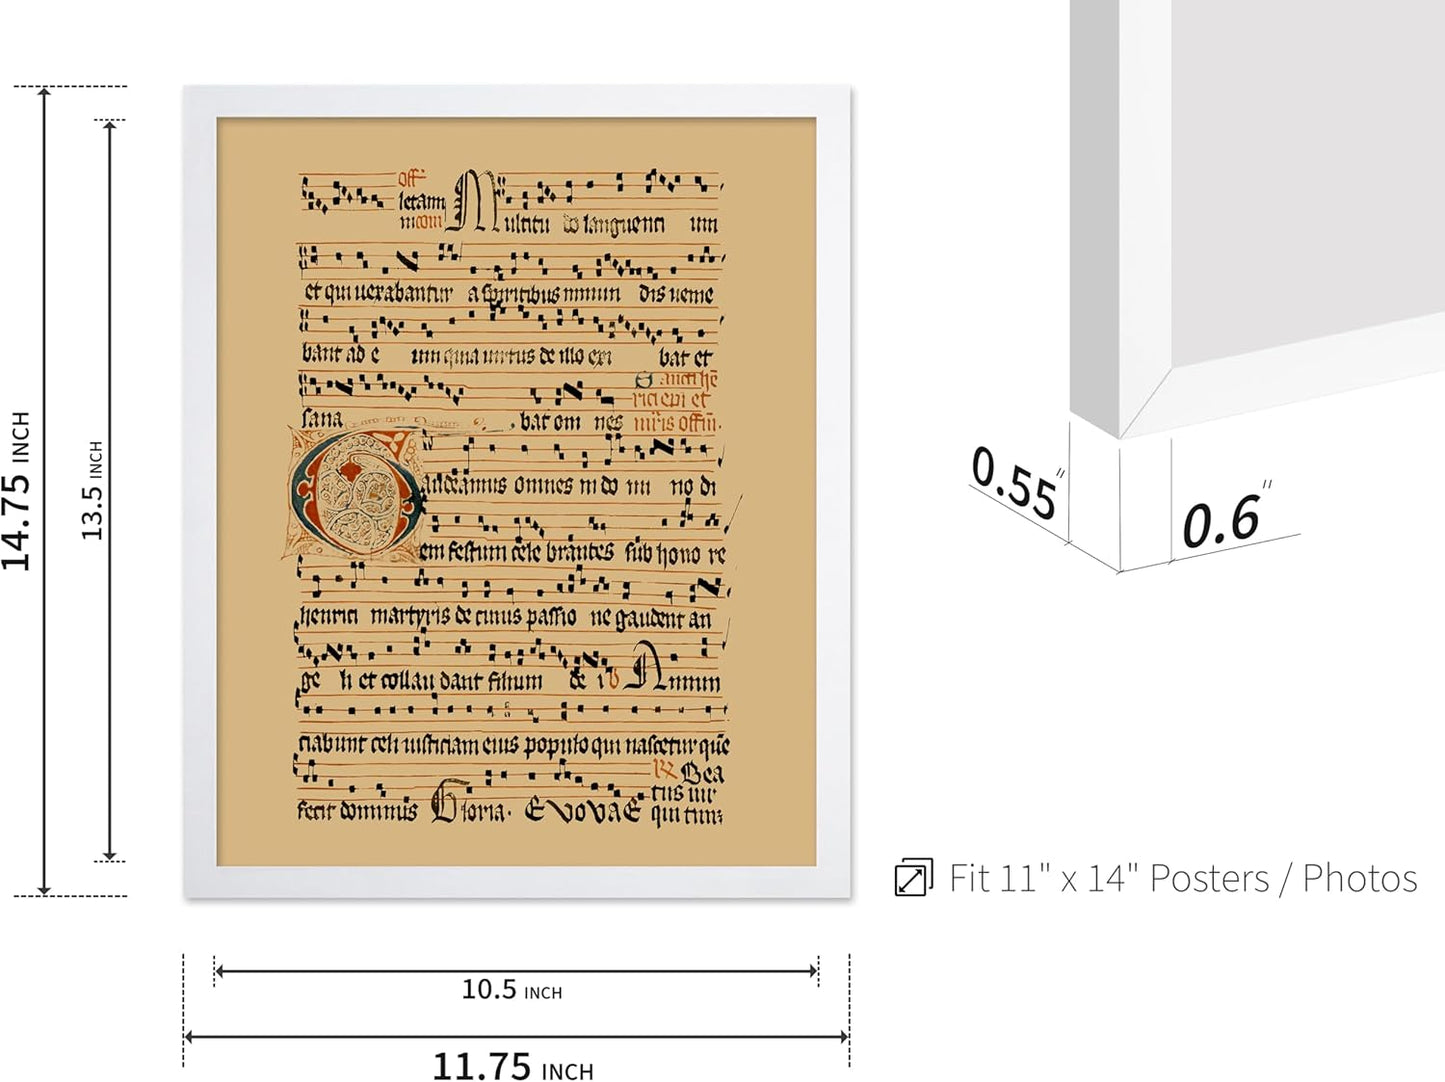 off
letam
Multitu do languenti um
et qui uexabantur a spiritibus inmun dis ueme
bant ad e um quia uirtus de illo exi bat et
Sancti hē
rici epi et
sana bat om nes
Gaudeamus omnes in do mi no di
em festum cele brantes sub hono re
henrici martyris de cuius passio ne gaudent an
ge li et collau dant filium de i Annun
ciabunt celi iusticiam eius populo qui nascetur quē
Bea
tus uir
fecit dominus Gloria. EVOVAE qui
14.75 INCH
13.5 INCH
10.5 INCH
11.75 INCH
0.55"
0.6"
Fit 11" x 14" Posters / Photos